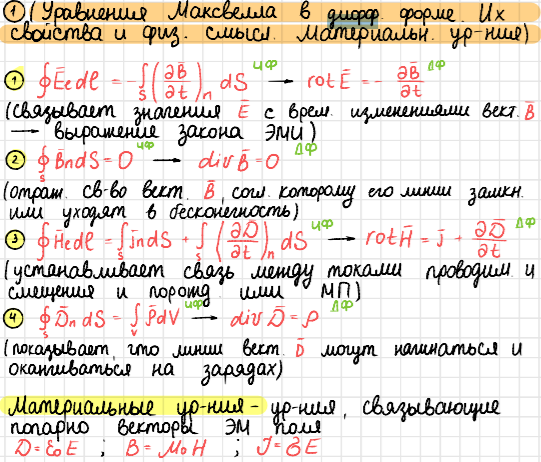 ① (Уравнения Максвелла в дифф. форме. Их
свойства и физ. смысл. Материальн. ур-ния)
① ∮E̅ₑdl = -∫ₛ(∂B̅/∂t)ₙ dS ᴵᶲ → rot E̅ = - ∂B̅/∂t ДФ
(связывает значения E̅ с врем. изменениями вект. B̅
→ выражение закона ЭМИ)
② ∮ₛ B̅ndS = 0 ИФ → div B̅ = 0 ДФ
(отраж. св-во вект. B̅, согл. которому его линии замкн.
или уходят в бесконечность)
③ ∮H̅edl = ∫ₛ j̅ndS + ∫ₛ (∂D̅/∂t)ₙ dS ИФ → rot H̅ = j̅ + ∂D̅/∂t ДФ
(устанавливает связь между токами проводим и
смещения и порожд ими МП)
④ ∮ₛ D̅ₙ dS = ∫ᵥ ρ̅dV ИФ → div D̅ = ρ ДФ
(показывает, что линии вект. D̅ могут начинаться и
оканчиваться на зарядах)
Материальные ур-ния - ур-ния, связывающие
попарно векторы ЭМ поля
D = ε₀E ; B = μ₀H ; J = σE